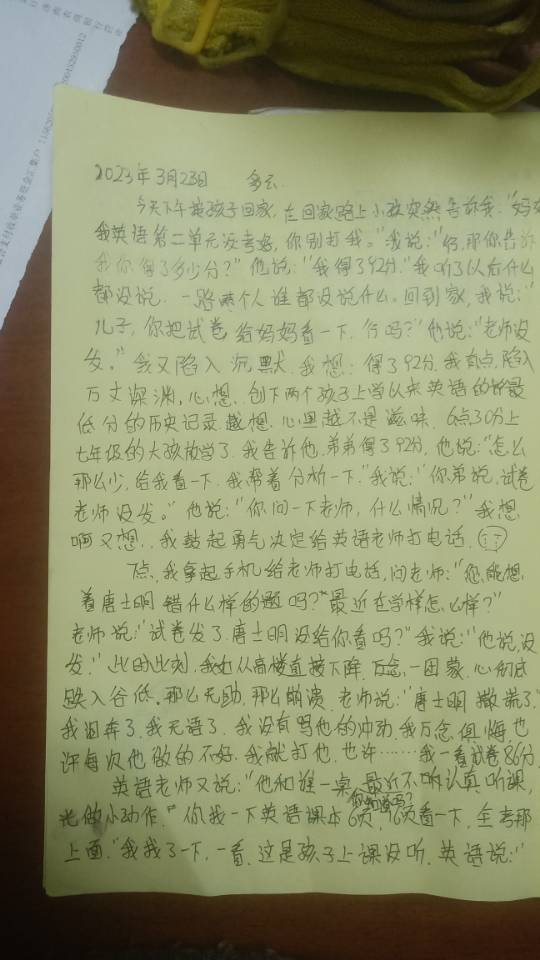 2023年3月23日 多云
今天下午接孩子回家,在回家路上小孩突然告诉我:"妈妈
我英语第二单元没考好,你别打我。"我说:"行,那你告诉
我你得了多少分?"他说:"我得了92分."我听了以后什么
都没说.一路两个人谁都没说什么。回到家,我说:"
儿子,你把试卷给妈妈看一下,行吗?"他说:"老师没
发。"我又陷入沉默.我想:得了92分,我有点陷入
万丈深渊,心想.创下两个孩子上学以来英语的最
低分的历史记录.越想.心里越不是滋味.6点30分上
七年级的大孩放学了.我告诉他,弟弟得了92分,他说:"怎么
那么少,给我看一下.我帮着分析一下."我说:"你弟说,试卷
老师没发。"他说:"你问一下老师,什么情况?"我想
啊又想..我鼓起勇气决定给英语老师打电话.
7点,我拿起手机给老师打电话,问老师:"您能想
着唐士明错什么样的题吗?""最近在学样怎么样?"
老师说:"试卷发了.唐士明没给你看吗?"我说:"他说,没
发."此时此刻.我如从高楼直接下降.万念.一团蒙.心彻底
跌入谷低.那么无助.那么崩溃.老师说:"唐士明撒谎了."
我泪奔了.我无语了.我没有骂他的冲动.我万念俱悔.也
许每次他做的不好.我就打他.也许……我一看试卷86分.
英语老师又说:"他和谁一桌 你知道吗? 最近不认真听课,
光做小动作。"你找一下英语课本6页,16页看一下,全考那
上面."我找了一下.一看.这是孩子上课没听.英语说:"